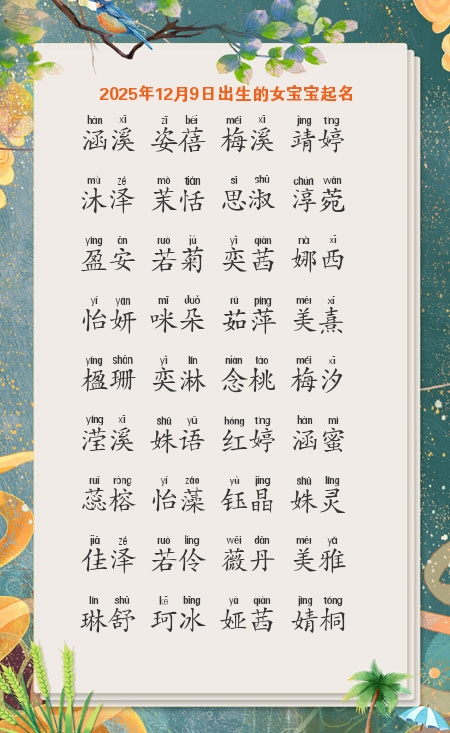 2025年12月9日出生的女宝宝起名
hán xī zī bèi méi xī jìng tíng
涵溪 姿蓓 梅溪 靖婷
mù zé mò tián sī shū chún wǎn
沐泽 茉恬 思淑 淳菀
yíng ān ruò jú yì qiàn nà xī
盈安 若菊 奕茜 娜西
yí yán mī duǒ rú píng měi xī
怡妍 咪朵 茹萍 美熹
yíng shān yì lín niàn táo méi xī
楹珊 奕淋 念桃 梅汐
yíng xī shū yǔ hóng tíng hán mì
滢溪 姝语 红婷 涵蜜
ruǐ róng yí zǎo yù jīng shū líng
蕊榕 怡藻 钰晶 姝灵
jiā zé ruò líng wēi dān měi yǎ
佳泽 若伶 薇丹 美雅
lín shū kē bīng yà qiàn jìng tóng
琳舒 珂冰 娅茜 婧桐